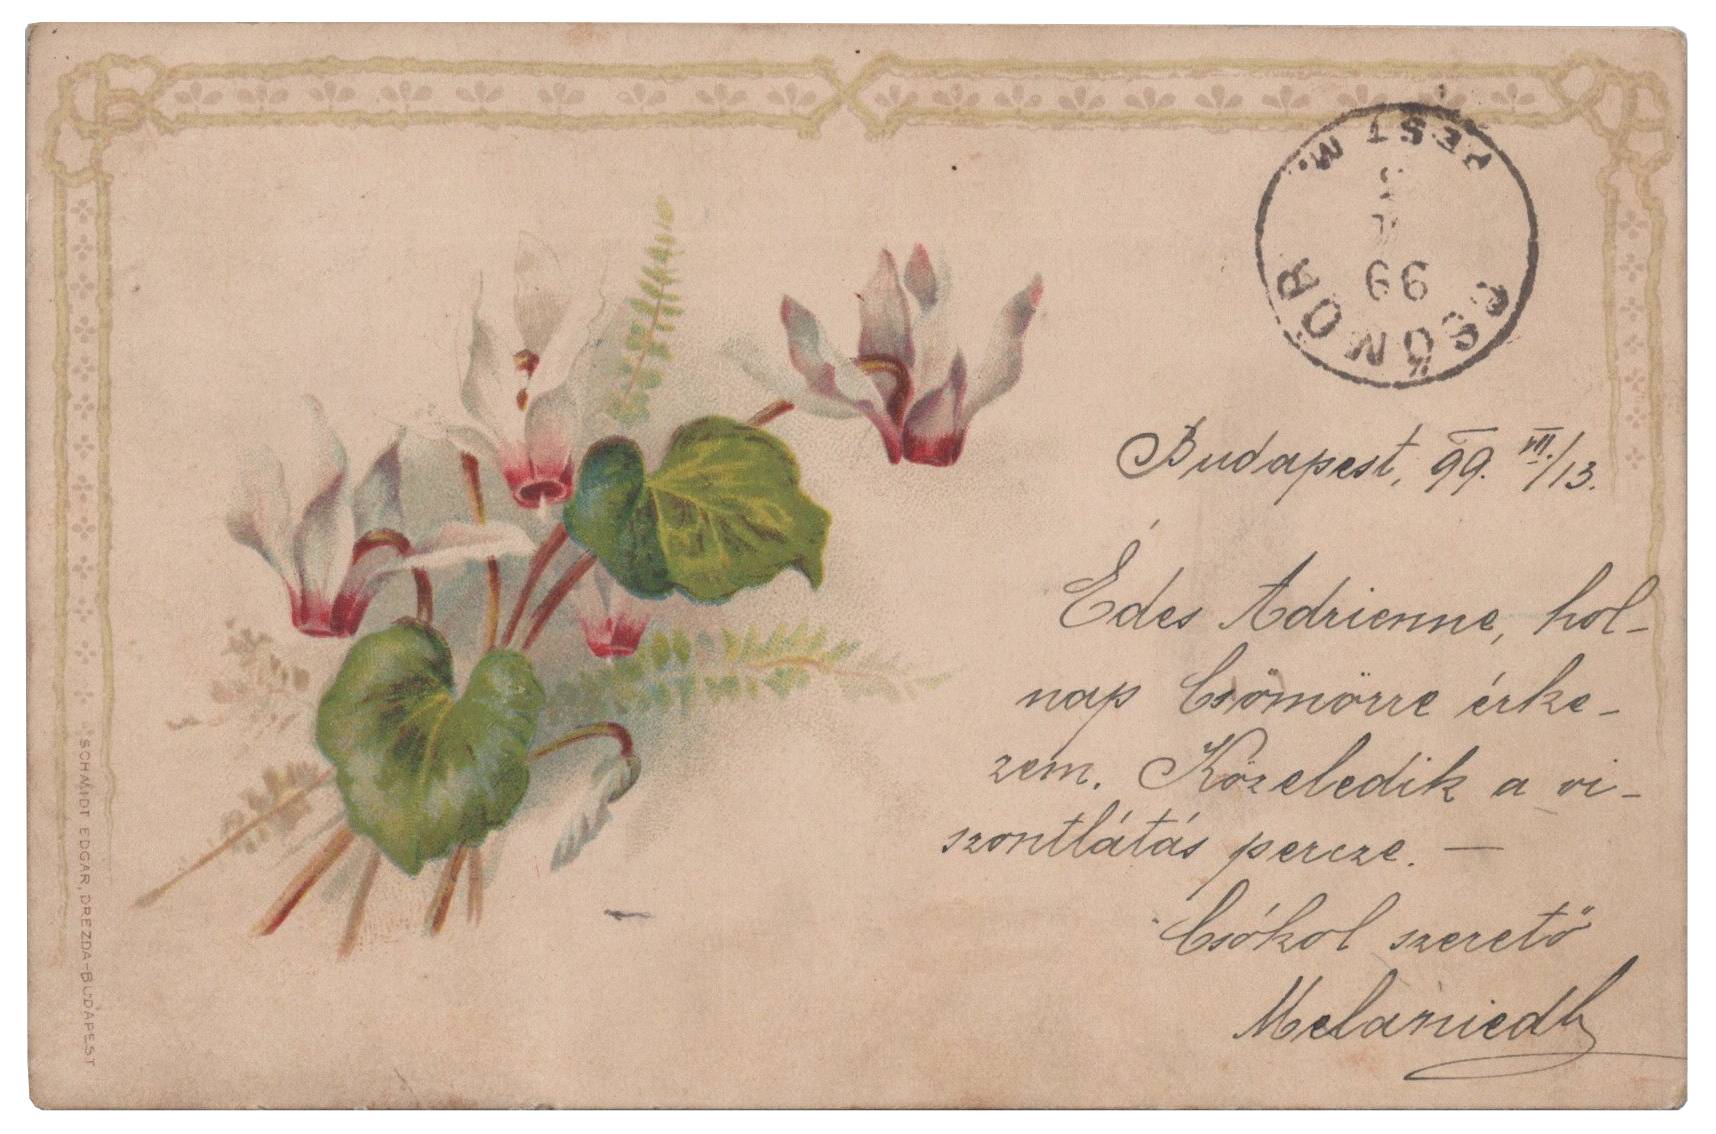 PEST M.
99
CSÖMÖR
Budapest, 99. VII./13.
Édes Adrienne, hol-
nap Csömörre érke-
zem. Közeledik a vi-
szontlátás percze. —
Csókol szerető
SCHMIDT EDGAR, DREZDA-BUDAPEST